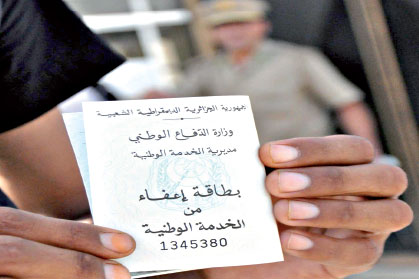 جمهورية الجزائرية الديمقراطية الشعبية
وزارة الدفاع الوطني
مديرية الخدمة الوطنية
بطاقة إعفاء
من
الخدمة الوطنية
1345380